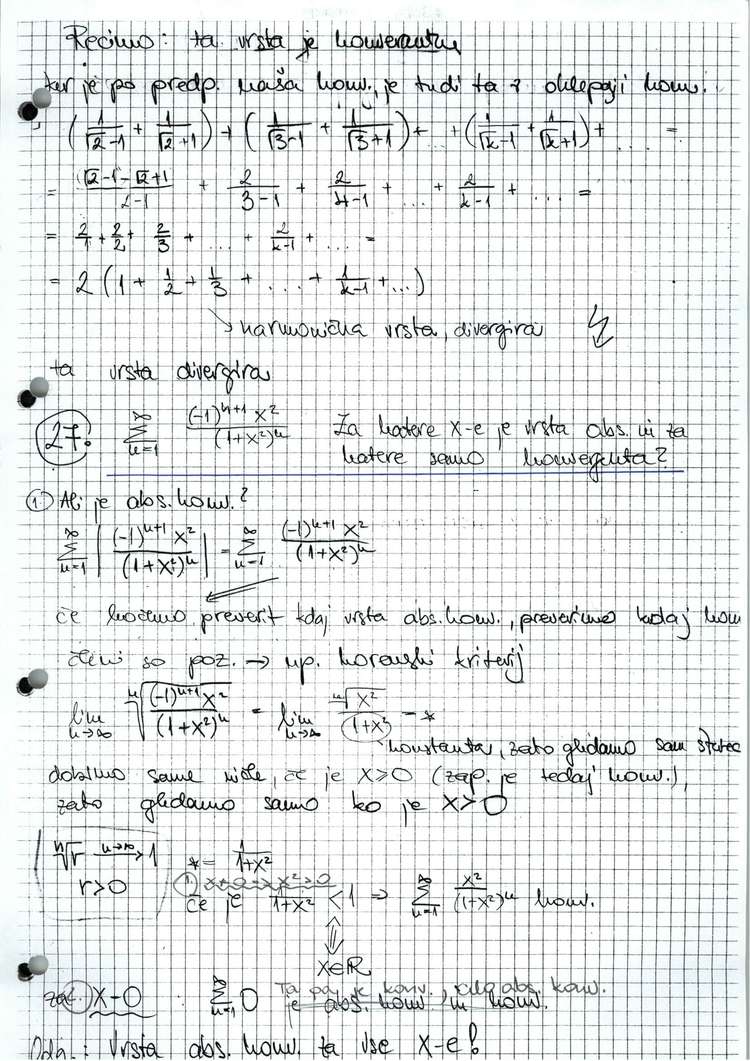 Recimo: ta vrsta je konvergentna
ker je po predp. naša konv., je tudi ta z oklepaji konv.
(1/(√2-1) + 1/(√2+1)) + (1/(√3-1) + 1/(√3+1)) + ... + (1/(√k-1) + 1/(√k+1)) + ... =
= (√2-1-√2+1)/(2-1) + 2/(3-1) + 2/(4-1) + ... + 2/(k-1) + ... =
= 2/1 + 2/2 + 2/3 + ... + 2/(k-1) + ... =
= 2 (1 + 1/2 + 1/3 + ... + 1/(k-1) + ...)
harmonična vrsta, divergira
ta vrsta divergira
27. ∑_{n=1}^∞ (-1)^{n+1} x²/(1+x²)^n Za katere x-e je vrsta abs. in za
katere samo konvergenta?
1. Ali je abs. konv.?
∑_{n=1}^∞ |(-1)^{n+1} x²/(1+x²)^n| = ∑_{n=1}^∞ (-1)^{n+1} x²/(1+x²)^n
če hočemo preverit kdaj vrsta abs. konv., preverimo kdaj konv
členi so poz. → up. korenski kriterij
lim_{n→∞} ⁿ√((-1)^{n+1} x²/(1+x²)^n) = lim_{n→∞} ⁿ√x²/(1+x²) = *
konstanta, zato gledamo sam
dobimo same ničle, če je x=0 (zap. je tedaj konv.),
zato gledamo samo ko je x>0
ⁿ√r →^{n→∞} 1
r>0
* = 1/(1+x²)
če je 1/(1+x²) < 1 ⇒ ∑_{n=1}^∞ x²/(1+x²)^n konv.
⇕
x∈ℝ
x=0 ∑_{n=1}^∞ 0 Ta pa je konv., abs. konv.
je abs. konv. in konv.
Odg.: Vrsta abs. konv. za vse x-e!